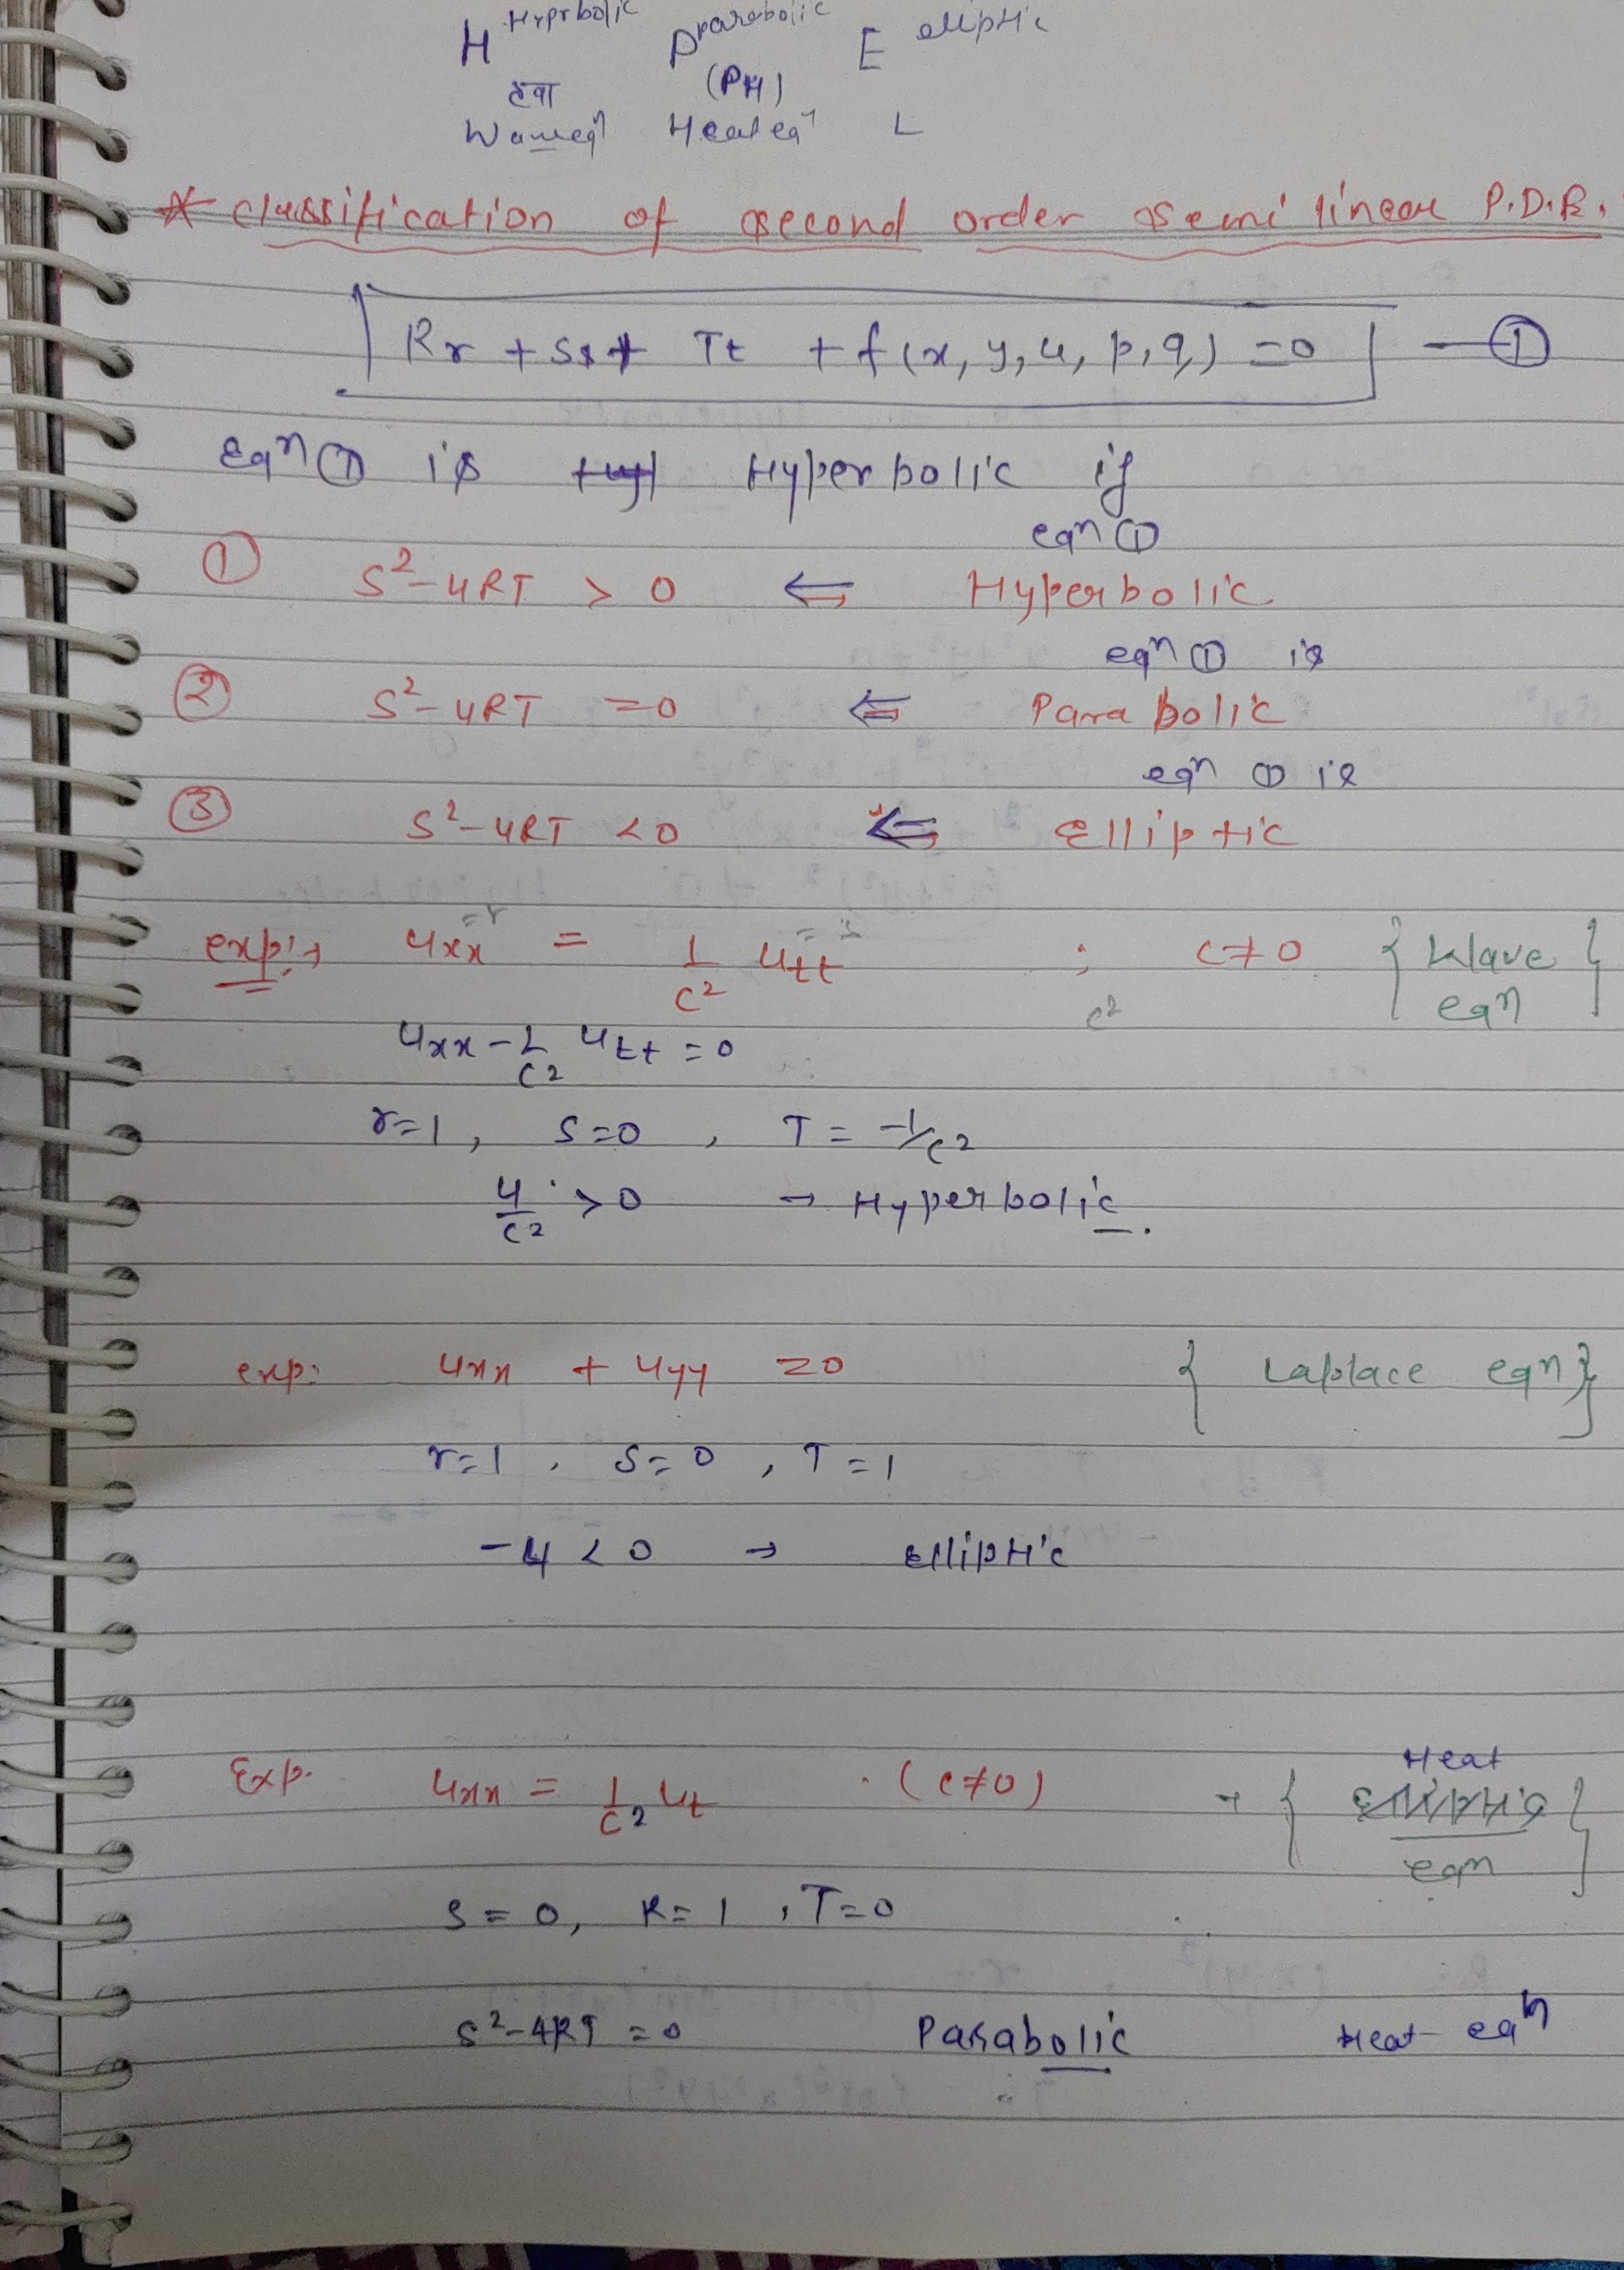 H Hyprbolic P parabolic E elliptic
हवा (PH)
Waveeqn Heateqn L
* classification of second order semi linear P.D.E.
Rr + Ss + Tt + f(x, y, u, p, q) = 0 — ①
eqn ① is Hyperbolic if
eqn ①
① S²-4RT > 0 ⇐ Hyperbolic
eqn ① is
② S²-4RT = 0 ⇐ Parabolic
eqn ① is
③ S²-4RT < 0 ⇐ Elliptic
exp:→ uxx = 1/c² utt ; c≠0 { Wave eqn }
=r c²
uxx - 1/c² utt = 0
r=1, S=0, T = -1/c²
4/c² > 0 → Hyperbolic.
exp: uxx + uyy = 0 { Laplace eqn }
r=1, S=0, T=1
-4 < 0 → Elliptic
Exp. uxx = 1/c² ut . (c≠0) → { Heat eqn }
S = 0, R = 1, T=0
S²-4RT = 0 Parabolic Heat eqn